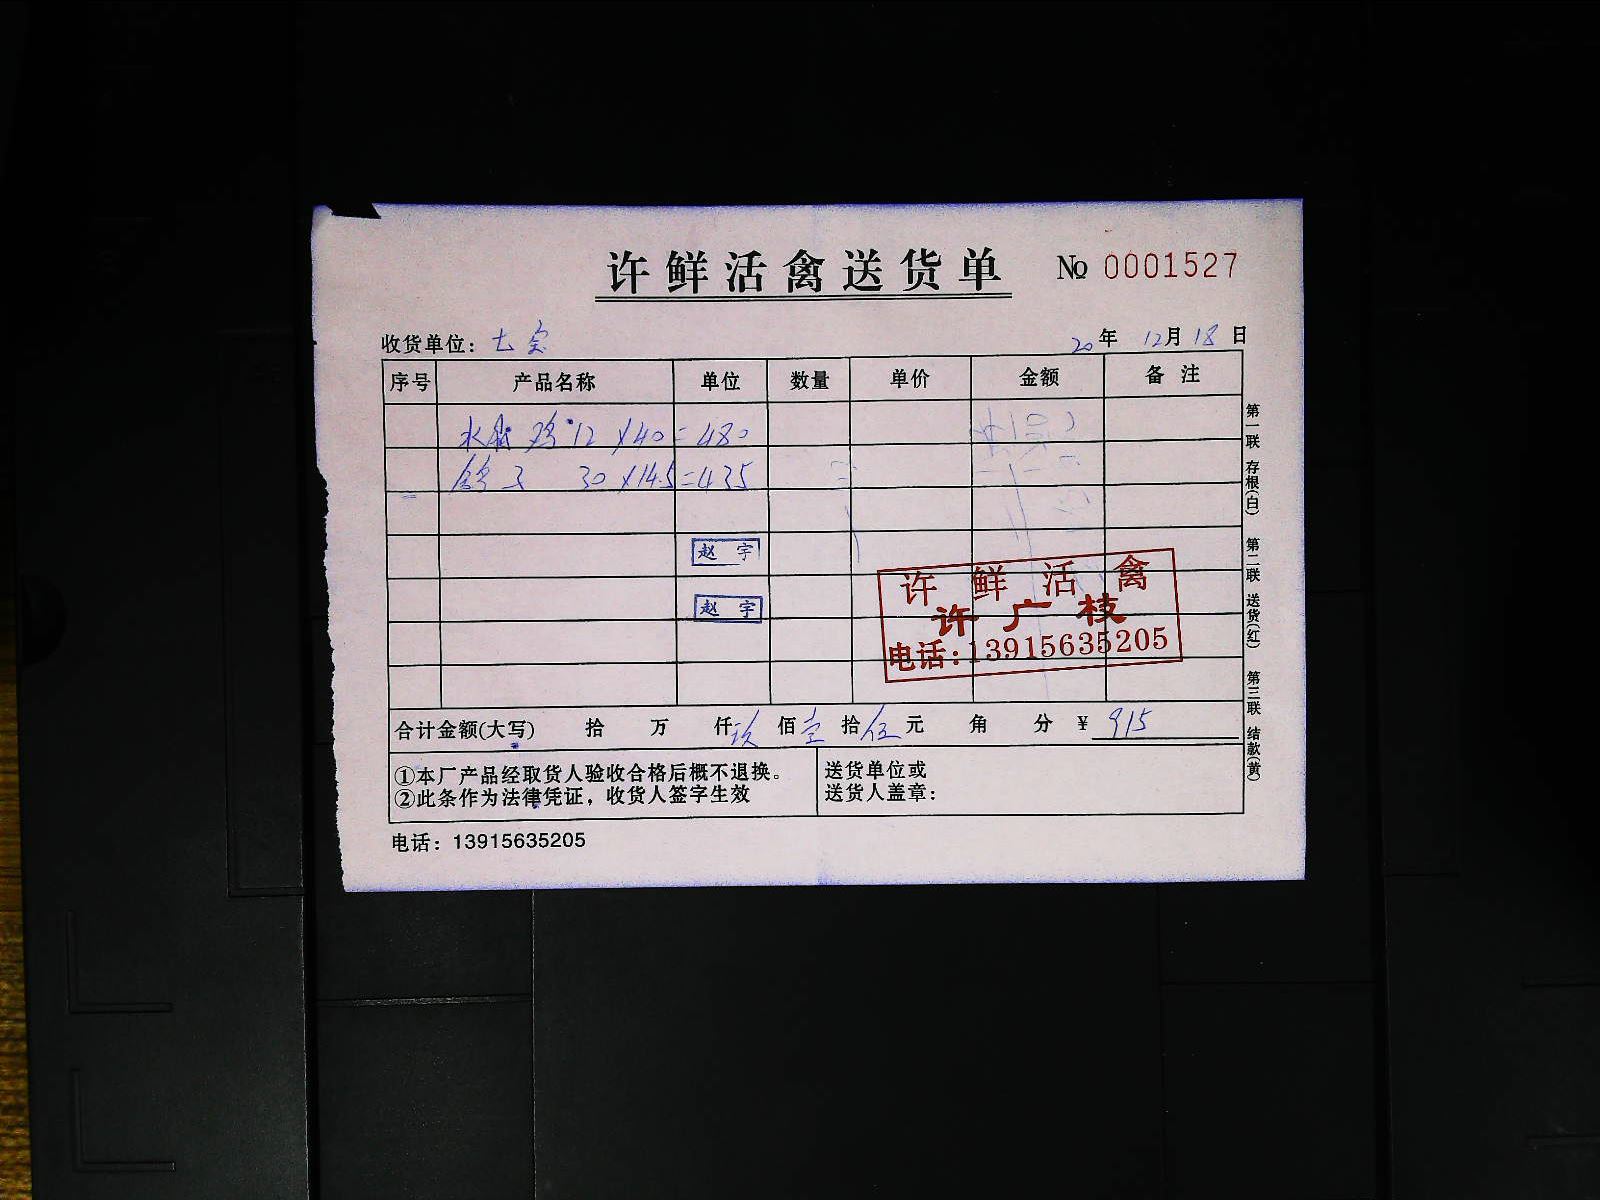 许鲜活禽送货单 № 0001527
收货单位: 七宝 20年 12月18日
序号 产品名称 单位 数量 单价 金额 备注
鸡 12 ×40=480
鸽子 30×14.5=435
赵宇
赵宇
许鲜活禽
许广枝
电话:13915635205
合计金额(大写) 拾 万 仟玖佰壹拾伍元 角 分 ¥ 915
①本厂产品经取货人验收合格后概不退换。
②此条作为法律凭证，收货人签字生效
送货单位或
送货人盖章:
电话: 13915635205
第一联 存根(白) 第二联 送货(红) 第三联 结款(黄)